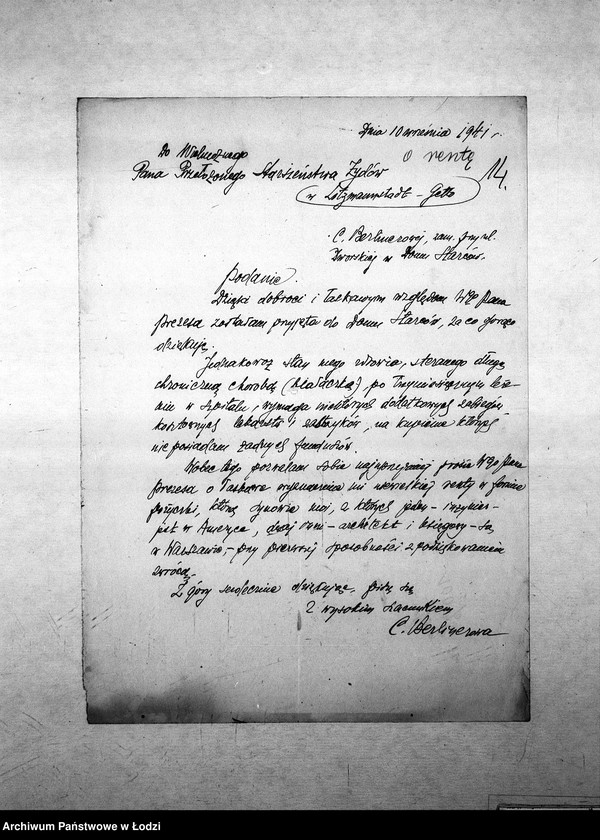 Dnia 10 września 1941 r.
o rentę
14.
Do Wielmożnego
Pana Przełożonego Starszeństwa Żydów
w Litzmannstadt - Getto
C. Berlinerowej, zam. przy ul.
Dworskiej w Domu Starców.
podanie.
Dzięki dobroci i łaskawym względom WgoPana
Prezesa zostałam przyjęta do Domu Starców, za co gorąco
dziękuję.
Jednakowoż stan mego zdrowia, steranego długą
chroniczną chorobą (białaczką), po trzymiesięcznym leże-
niu w szpitalu, wymaga niektórych dodatkowych zabiegów
kosztownych lekarstw i zastrzyków, na kupienie których
nie posiadam żadnych funduszów.
Wobec tego pozwalam sobie najuprzejmiej prosić WgoPana
Prezesa o łaskawe wyznaczenie mi niewielkiej renty w formie
pożyczki, którą synowie moi, z których jeden - inżynier -
jest w Ameryce, dwaj inni - architekt i księgowy - są
w Warszawie, - przy pierwszej sposobności z podziękowaniem
zwrócą.
Z góry serdecznie dziękując, piszę się
z wysokim szacunkiem
C. Berlinerowa
Archiwum Państwowe w Łodzi